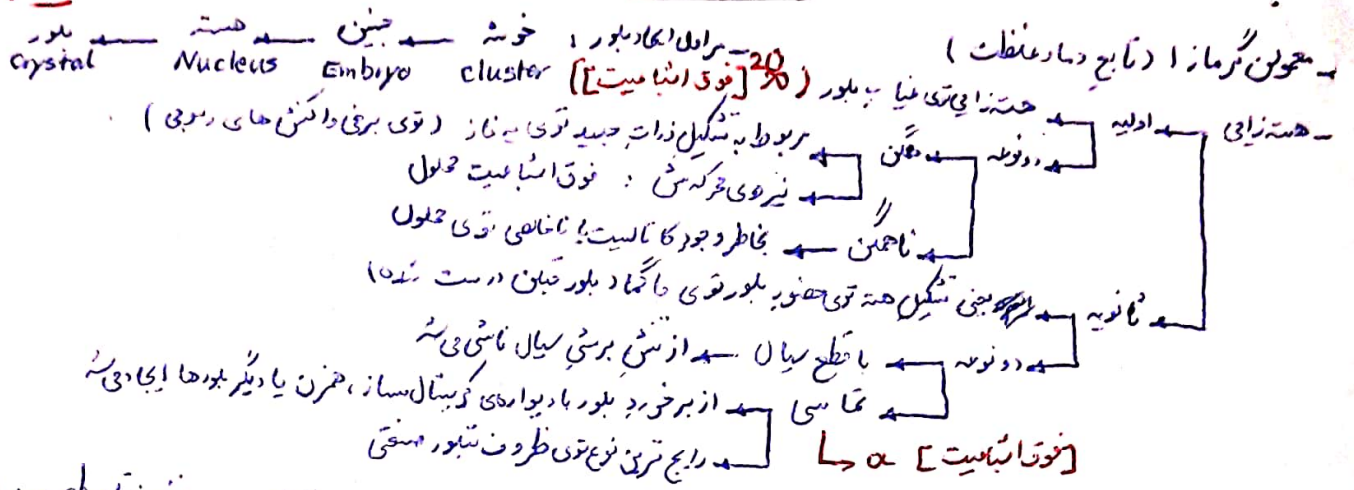 - مراحل ایجاد بلور : خوشه ← جنین ← هسته ← بلور
cluster Embryo Nucleus crystal
- معمولن گرمازا (تابع دما و غلظت)
- هسته زایی ← اولیه ← هسته زایی توی غیاب بلور (20% [فوق اشباعیت])
دو نوعه ← همگن ← مربوط به تشکیل ذرات جدید توی یه فاز (توی برخی واکنش های رسوبی)
نیروی محرکه ش : فوق اشباعیت محلول
ناهمگن ← بخاطر وجود کاتالیست یا ناخالصی توی محلول
ثانویه ← یعنی تشکیل هسته توی حضور بلور توی ماگما (بلور قبلن درست شده)
دو نوعه ← با قطع سیال ← از تنش برشی سیال ناشی می شه
تماسی ← از برخورد بلور با دیواره ی کریستال ساز، همزن یا دیگر بلورها ایجاد می شه
رایج ترین نوع توی ظروف تبلور صنعتی
α [فوق اشباعیت]